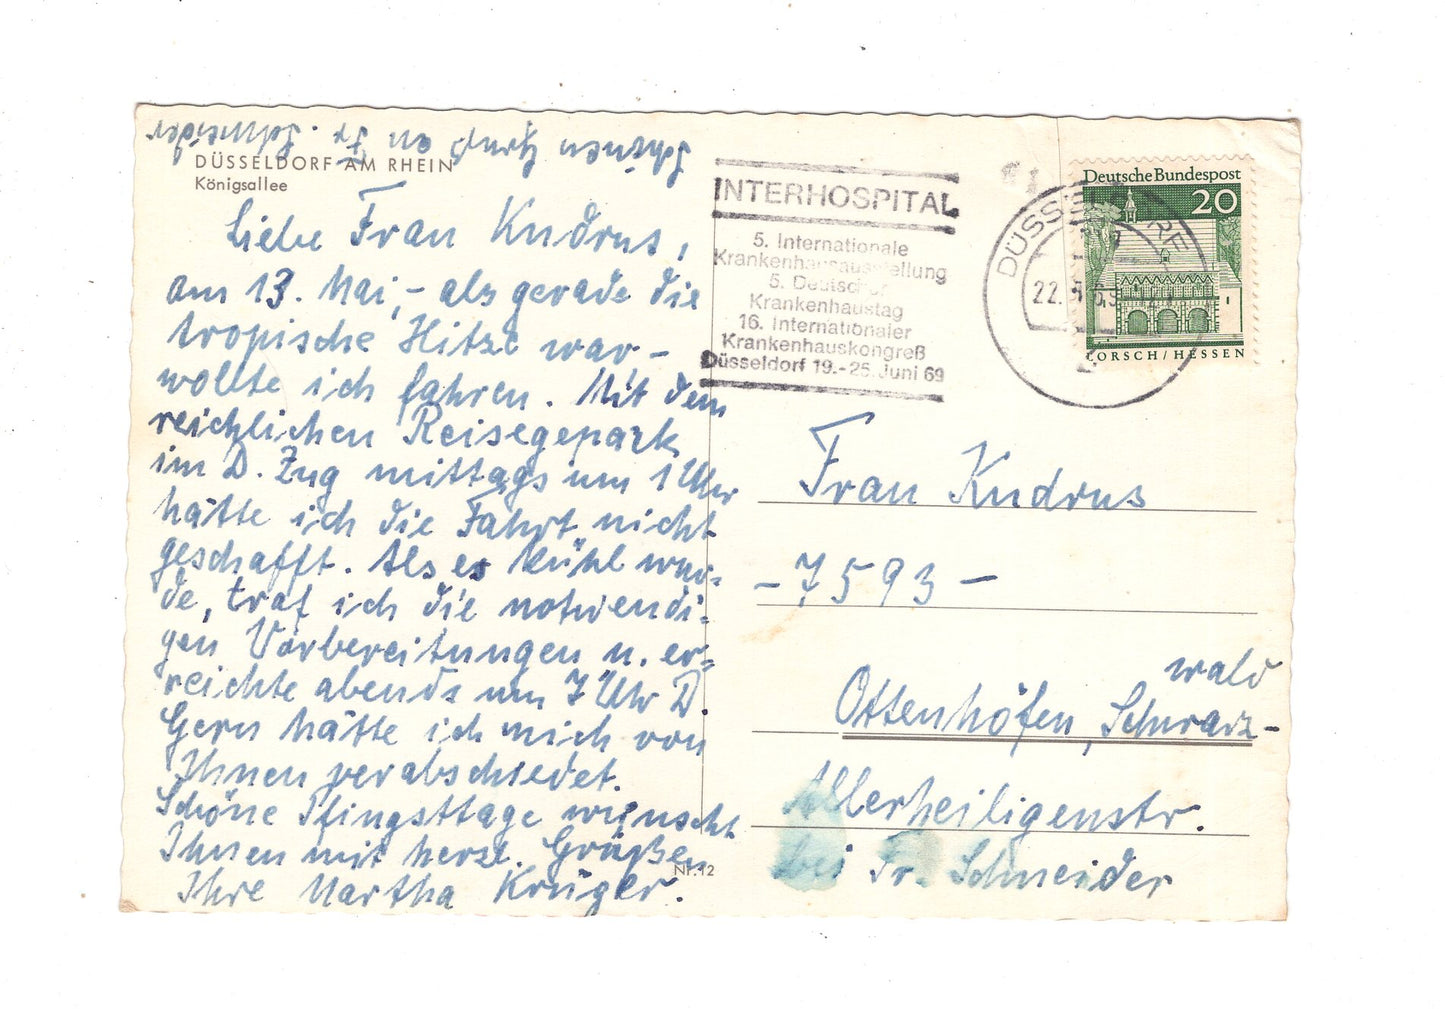 Schönen Gruß an Fr. Schneider
DÜSSELDORF AM RHEIN
Königsallee
Liebe Frau Kudrus,
am 13. Mai, - als gerade die
tropische Hitze war -
wollte ich fahren. Mit dem
reichlichen Reisegepäck
im D. Zug mittags um 1 Uhr
hätte ich die Fahrt nicht
geschafft. Als es kühl wur=
de, traf ich die notwendi=
gen Vorbereitungen u. er=
reichte abends um 7 Uhr D.
Gern hätte ich mich von
Ihnen verabschiedet.
Schöne Pfingsttage wünscht
Ihnen mit herzl. Grüßen
Ihre Martha Krüger.
Nr. 12
INTERHOSPITAL
5. Internationale
Krankenhausausstellung
5. Deutscher
Krankenhaustag
16. Internationaler
Krankenhauskongreß
Düsseldorf 19.-25. Juni 69
DÜSSELDORF
22. 5. 69
Deutsche Bundespost
20
LORSCH/HESSEN
Frau Kudrus
- 7593 -
Ottenhöfen, Schwarz-
wald
Allerheiligenstr.
bei Fr. Schneider